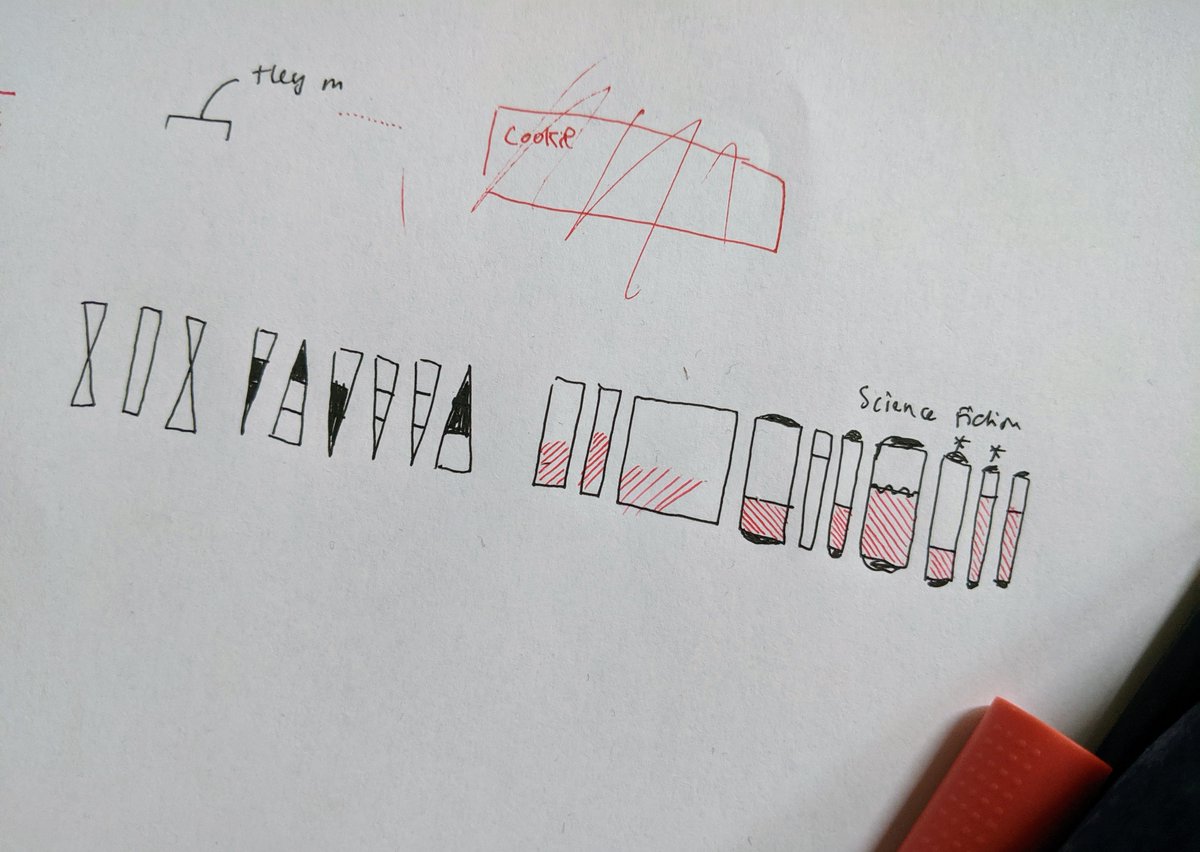 Hey m
Cookie
Science Fiction
* *